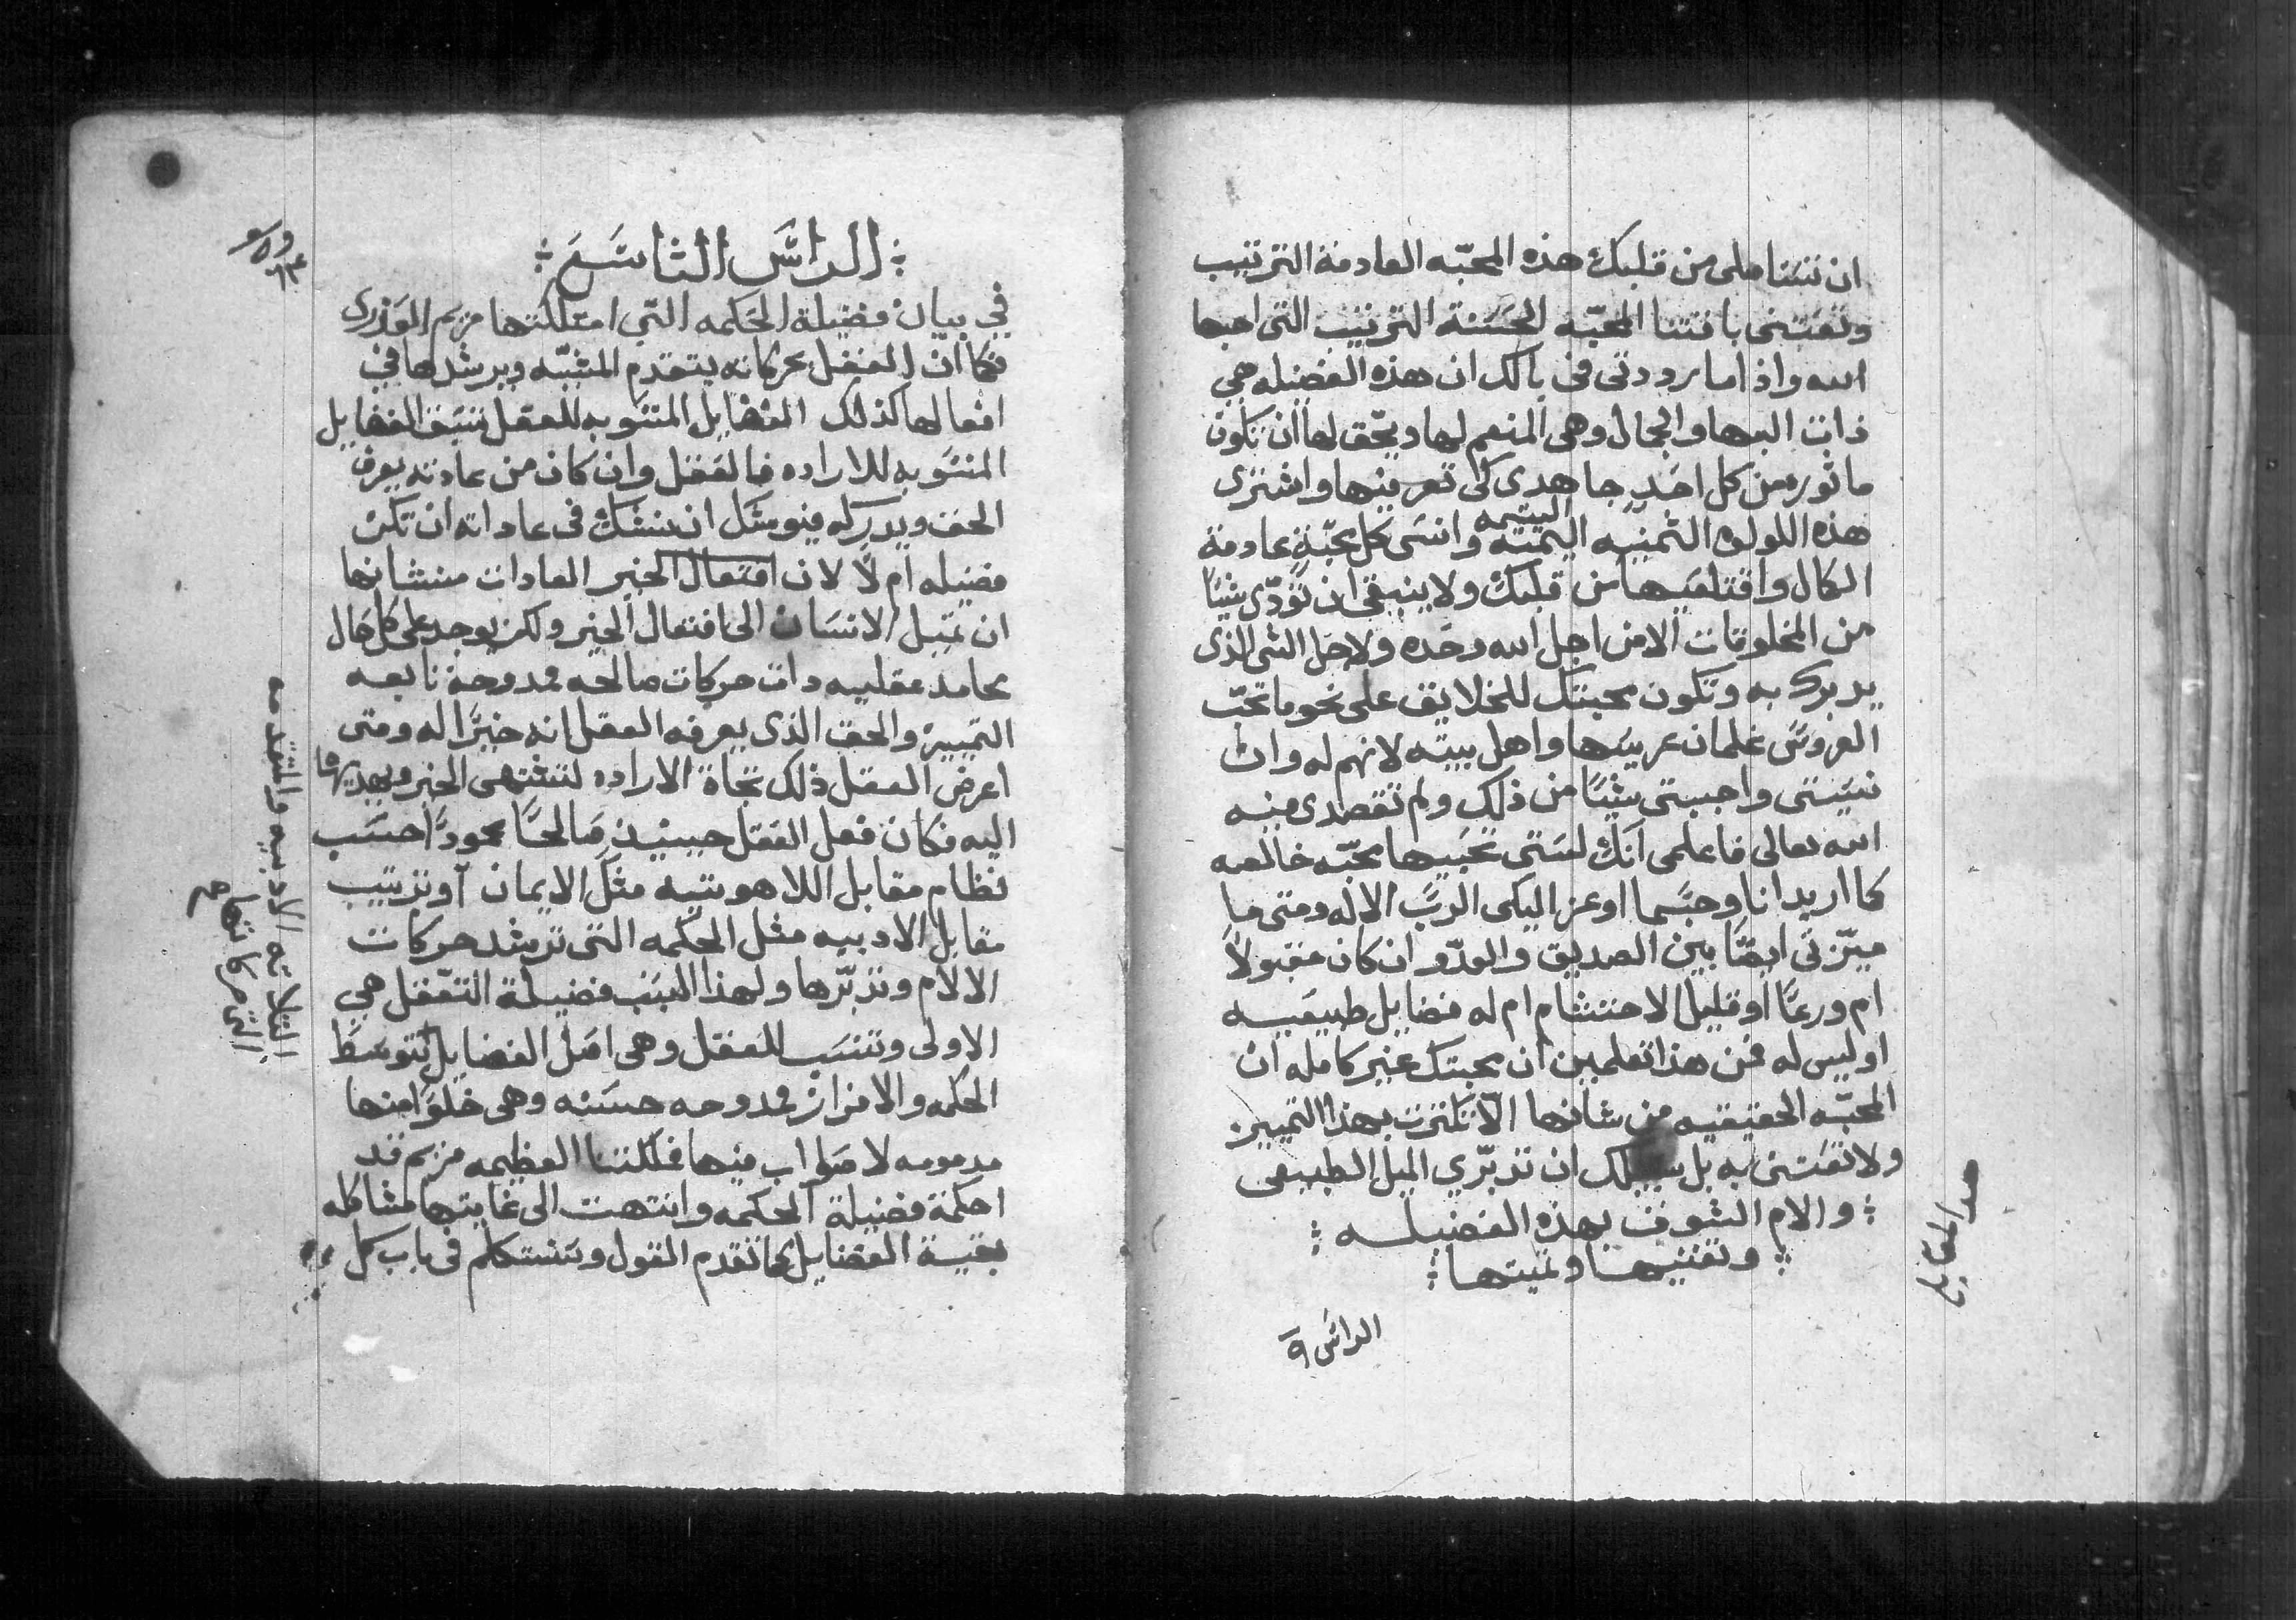 ان تستاصلى من قلبك هذه المحبّه العادمة الترتيب
وتعتنى باقتنا المحبّه الحسَنة الترتيب التى احبها
الله واذاما رددتى فى بالك ان هذه الفضيله هى
ذات البها والجمال وهى المنعم لها ويحّق لها ان تكون
ماثوره من كل احَدٍ جاهدى كى تعرفيها واشترى
هذه اللولوه الثمينه اليتيمه وانسَى كل محبّةٍ عادمة
الكمال واقتلعيها من قلبك ولا ينبغى ان تودّى شيًا
من المخلوقات الا من اجل الله وحَده ولاجل الشى الذى
يدبرك به وتكون محبتك للخلايق على نحو ما تحّب
العروسَ غلمان عريسَها واهل بيته لانهم له وان
نسَيتى واحببتى شيًا من ذلك ولم تقصدى منه
الله تعالى فاعلمى انك لستى تحبيها محبّه خالصه
كما اريد انا وحبَسما اوعز اليكى الربّ الاله ومتى ما
ميّزتى ايضًا بين الصديق والعدّو ان كان مقبولاً
ام ورعًا او قليل الاحتشام ام له فضايل طبيعيه
او ليس له فمن هذا تعلمين ان محبتك غير كامله ان
المحبّه الحقيقيه من شانها الّا تكترث بهذا التمييز
ولا تعتنى به بل سبيلك ان تدبّري الميل الطبيعى
والام الشوق بهذه الفضيله
وتقتنيها وتميتها
الراس ٩
الراسَ التاسَع
في بيان فضيلة الحَكمه التّي امتلكتها مريم العَذرى
فكما انّ العقل بحركاته يتقدم المشيّه ويرشدها في
افعالها كذلك الفضايل المنسَوبه للعقل تسَبق الفضايل
المنسَوبه للاراده فالعَقل وان كان من عادته يعرف
الحق ويدركه فيوشَك ان يشك فى عاداته ان تكن
فضيله ام لا لان افتعال الخير العادات من شانها
ان تميل الانسَان الى افتعال الخير ولكن يوجد على كل حَال
محامد عقليه ذات حركات صالحه ممدوحة تابعه
التمييز والحق الذى يعرفه العقل انه خيرًا له ومتى
اعرض العقل ذلك تجاة الاراده لتشتهى الخير ويهديها
اليه فكان فعل العَقل حينيذ صَالحًا محمودًا حسَب
نظام مقابل اللاهوتيه مثل الايمان او ترتيب
مقابل الادبيه مثل الحكمه التى ترشد حركات
الالام وتدبّرها ولهذا السَبَب فضيلة التعّقل هي
الاولى وتنسَب للعقل وهى اصَل الفضايل بتوسَط
الحكمه والافراز ممدوحه حسَنه وهى خلوًا منها
مدمومه لا صَواب فيها فملكتنا العظيمه مريم قد
احكمة فضيلة الحكمه وانتهت الى غايتها مشاكله
بقية الفضايل كما تقدم القول وسَنتكلم فى باب كل
الثلاثه الادبيه والمتقدمه